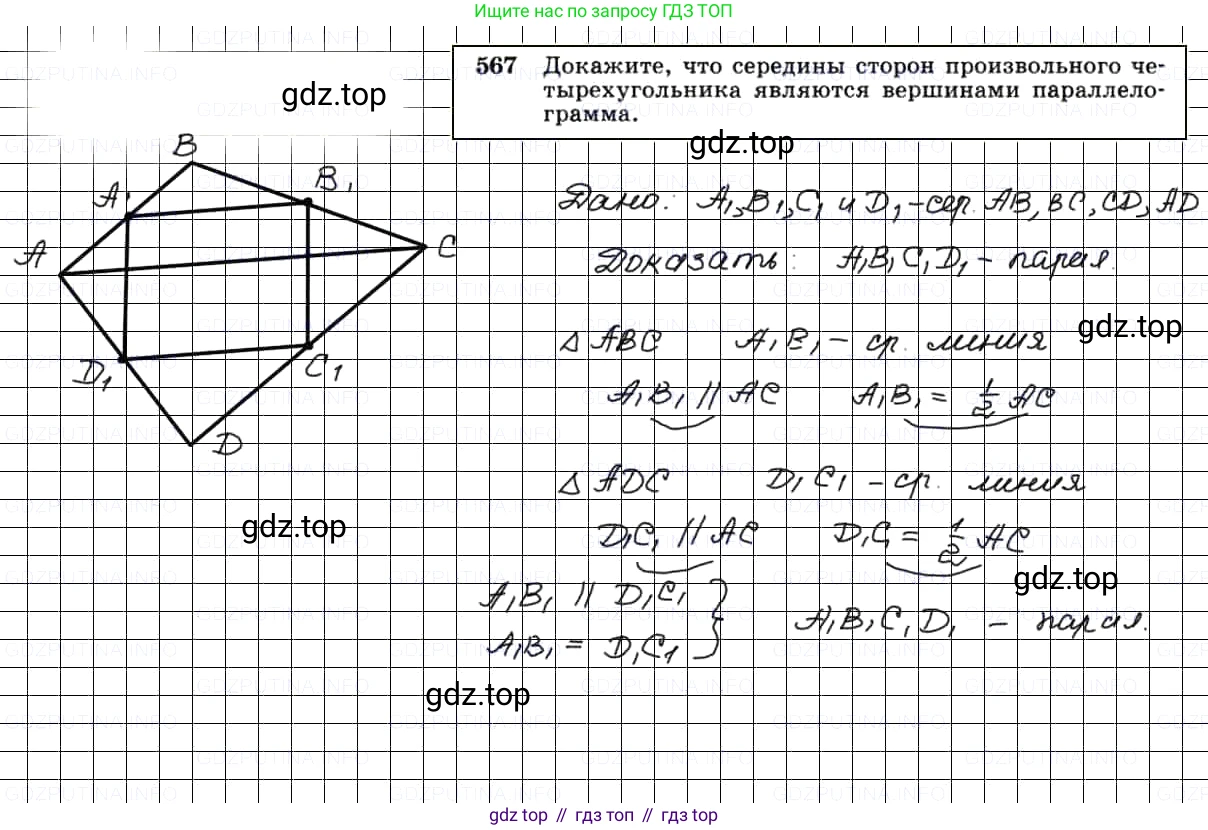 Ищите нас по запросу ГДЗ ТОП
567 Докажите, что середины сторон произвольного че-
тырехугольника являются вершинами параллело-
грамма.
gdz.top
gdz.top
B
A₁
B₁
A
C
D₁
C₁
D
Дано: A₁,B₁,C₁ и D₁-сер. AB, BC, CD, AD
Доказать: A₁B₁C₁D₁ - парал.
gdz.top
Δ ABC A₁B₁ - ср. линия
A₁B₁ // AC A₁B₁ = 1/2 AC
Δ ADC D₁C₁ - ср. линия
gdz.top
D₁C₁ // AC D₁C₁ = 1/2 AC
gdz.top
A₁B₁ // D₁C₁ }
A₁B₁ = D₁C₁ } A₁B₁C₁D₁ - парал.
gdz.top
GDZPUTINA.INFO
gdz top // гдз топ // гдз top